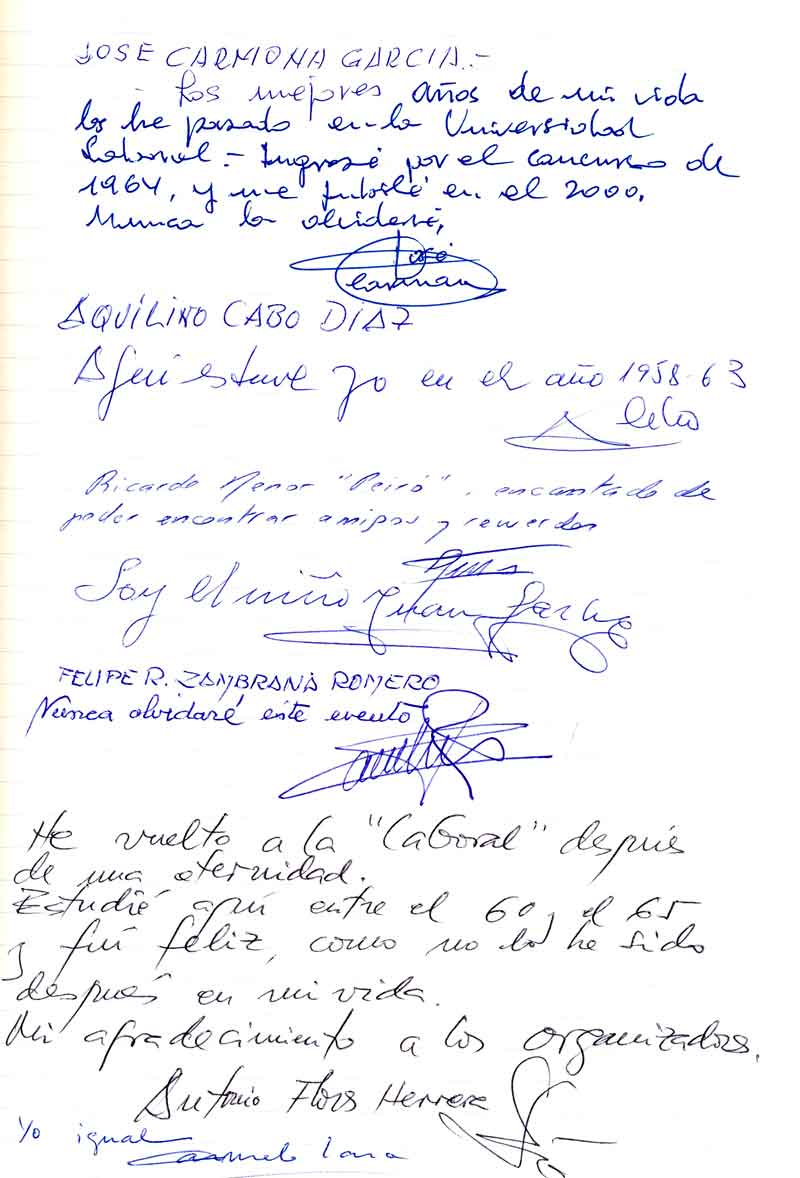 JOSE CARMONA GARCIA.-
- Los mejores años de mi vida
los he pasado en la Universidad
Laboral.- Ingresé por el concurso de
1964, y me jubilé en el 2000.
Nunca la olvidaré,
José
Carmona
AQUÍLINO CABO DIAZ
Aquí estuve yo en el año 1958-63
Ricardo Menor "Peiró", encantado de
poder encontrar amigos y recuerdos
Soy el niño Juan
FELIPE R. ZAMBRANA ROMERO
Nunca olvidaré este evento
He vuelto a la "Laboral" después
de una eternidad.
Estudié aquí entre el 60 y el 65
y fuí feliz, como no lo he sido
después en mi vida.
Mi agradecimiento a los organizadores.
Antonio Flores Herrera
Yo igual